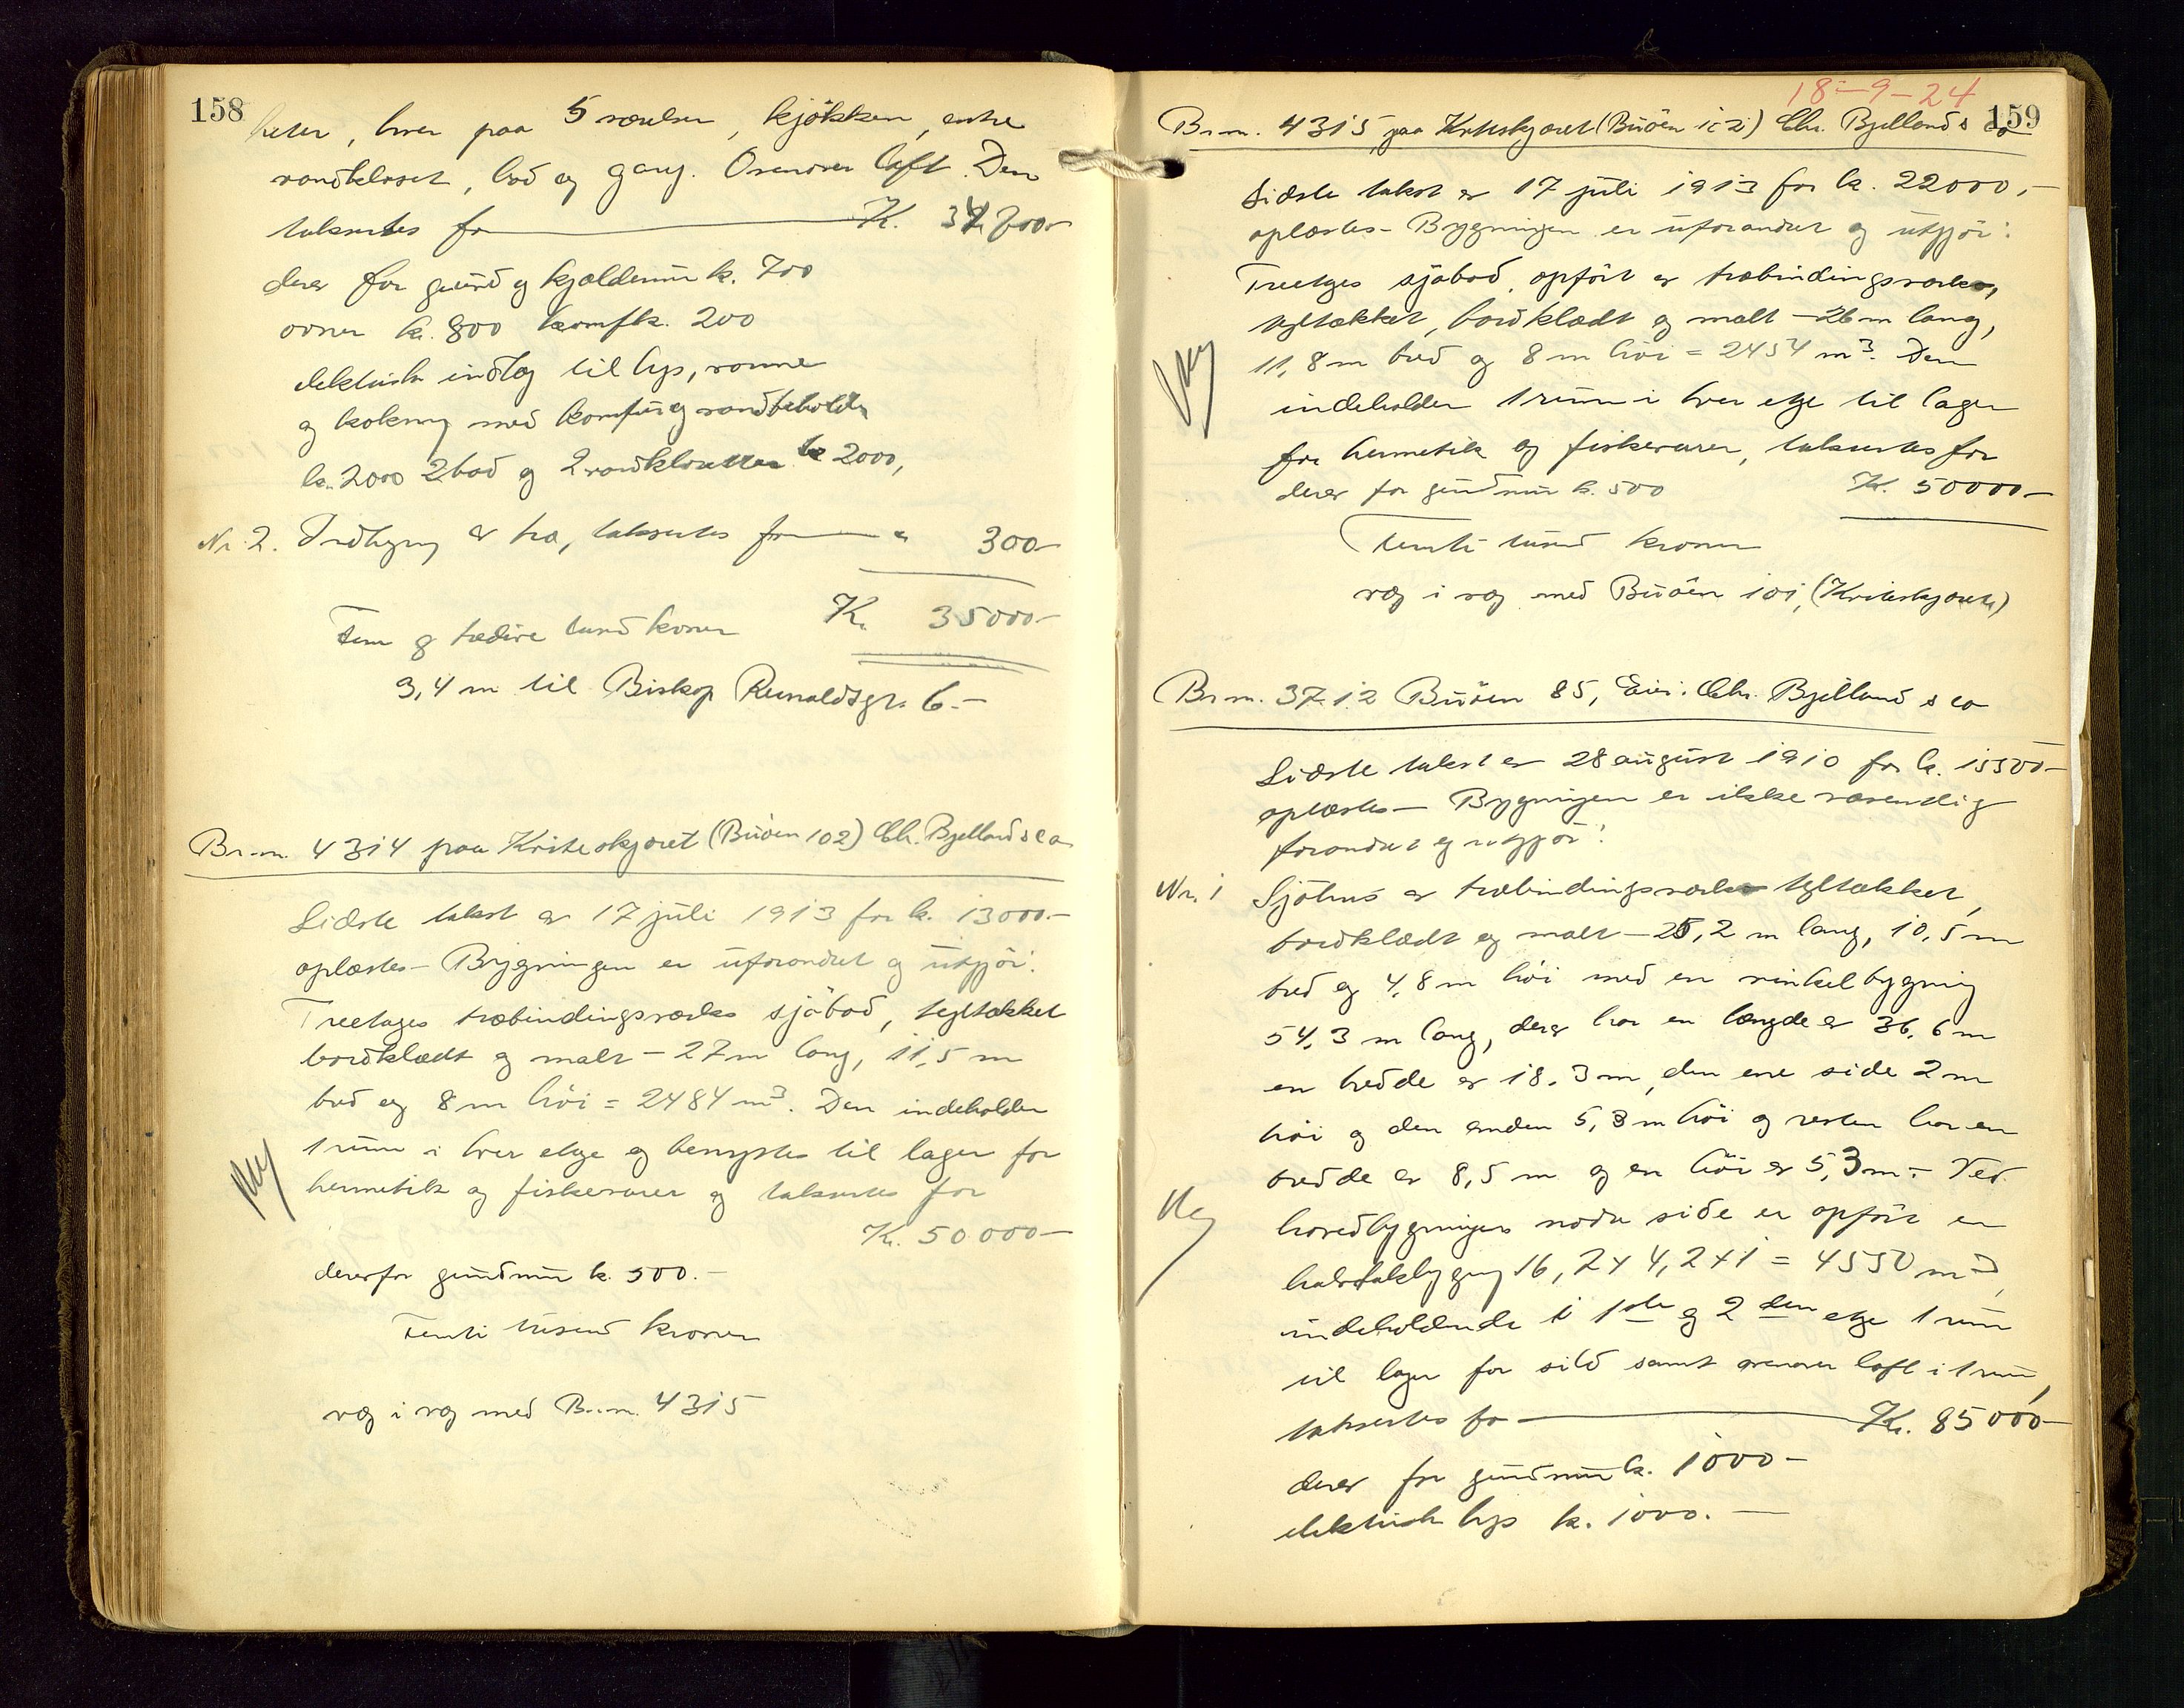 158
heter, hver paa 5 værelser, kjökken, entre
vandkloset, bad og gang. Ovenover loft. Den
taksertes for K. 34700-
derav for grund og kjældermur k. 700
ovner kr. 800 komf k. 200
elektrisk indlæg til lys, varme
og kokning med komfur og vandbeholder
kr. 2000 2 bad og 2 vandklosetter kr 2000,
Nr. 2. Indbygning av træ, taksertes for " 300-
Kr. 35000-
Fem og tredive tusind kroner
3,4 m til Biskop Reinaldsgt. 6.-
Br.nr. 4314 paa Kriteskjæret (Buöen 102) Chr. Bjelland & Co
Sidste takst er 17 juli 1913 for k. 13000.-
oplæstes- Bygningen er uforandret og utgjör:
Treetages træbindingsverks sjöbod, tegltækket
bordklædt og malt - 27 m lang, 11,5 m
bred og 8 m höi = 2484 m³. Den indeholder
1 rum i hver etge og benyttes til lager for
hermetik og fiskevarer og taksertes for
Kr. 50000-
derav for grundmur k. 500.-
Femti tusind kroner
væg i væg med Br.nr. 4315
Ny
18-9-24
159
Br.nr. 4315, paa Kriteskjæret (Buöen 102) Chr. Bjelland & Co
Sidste takst er 17 juli 1913 for k. 22000,-
oplæstes- Bygningen er uforandret og utgjör:
Treetges sjöbod, opfört av træbindingsverk,
tegltækket, bordklædt og malt - 26 m lang,
11,8 m bred og 8 m höi = 2454 m³. Den
indeholder 1 rum i hver etge til lager
for hermetik og fiskevarer, taksertes for
derav for grundmur k. 500 Kr. 50000-
Femti tusind kroner
væg i væg med Buöen 101, (Kriteskjæret)
Ny
Br.nr. 3712 Buöen 85, Eier: Chr. Bjelland & Co
Sidste takst er 28 august 1910 for k. 15500-
oplæstes- Bygningen er ikke væsentlig
forandret og utgjör:
Nr. 1 Sjöhus av træbindingsverk tegltækket,
bordklædt og malt - 25,2 m lang, 10,5 m
bred og 4,8 m höi med en vinkelbygning
54,3 m lang, derav har en længde av 36,6 m
en bredde av 18,3 m, den ene side 2 m
höi og den anden 5,3 m höi og resten har en
bredde av 8,5 m og en höi av 5,3 m.- Ved
hovedbygningens nordre side er opfört en
halvtakbygning 16,2 x 4,2 x 1 = 4550 m³,
indeholdende i 1ste og 2den etge 1 rum
til lager for sild samt ovenover loft i 1 rum,
taksertes for Kr. 85000-
derav for grundmur k. 1000-
elektrisk lys k. 1000.-
Ny